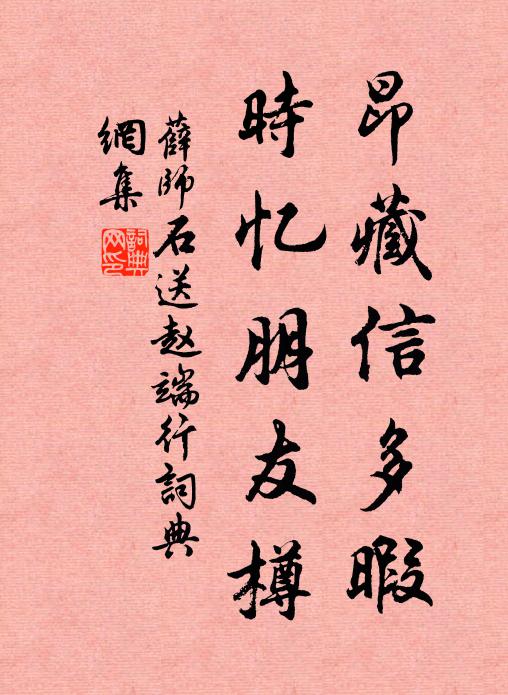 昂藏信多暇
時忆朋友樽
薛師石送赵端行詞典
網集
詞典
网印